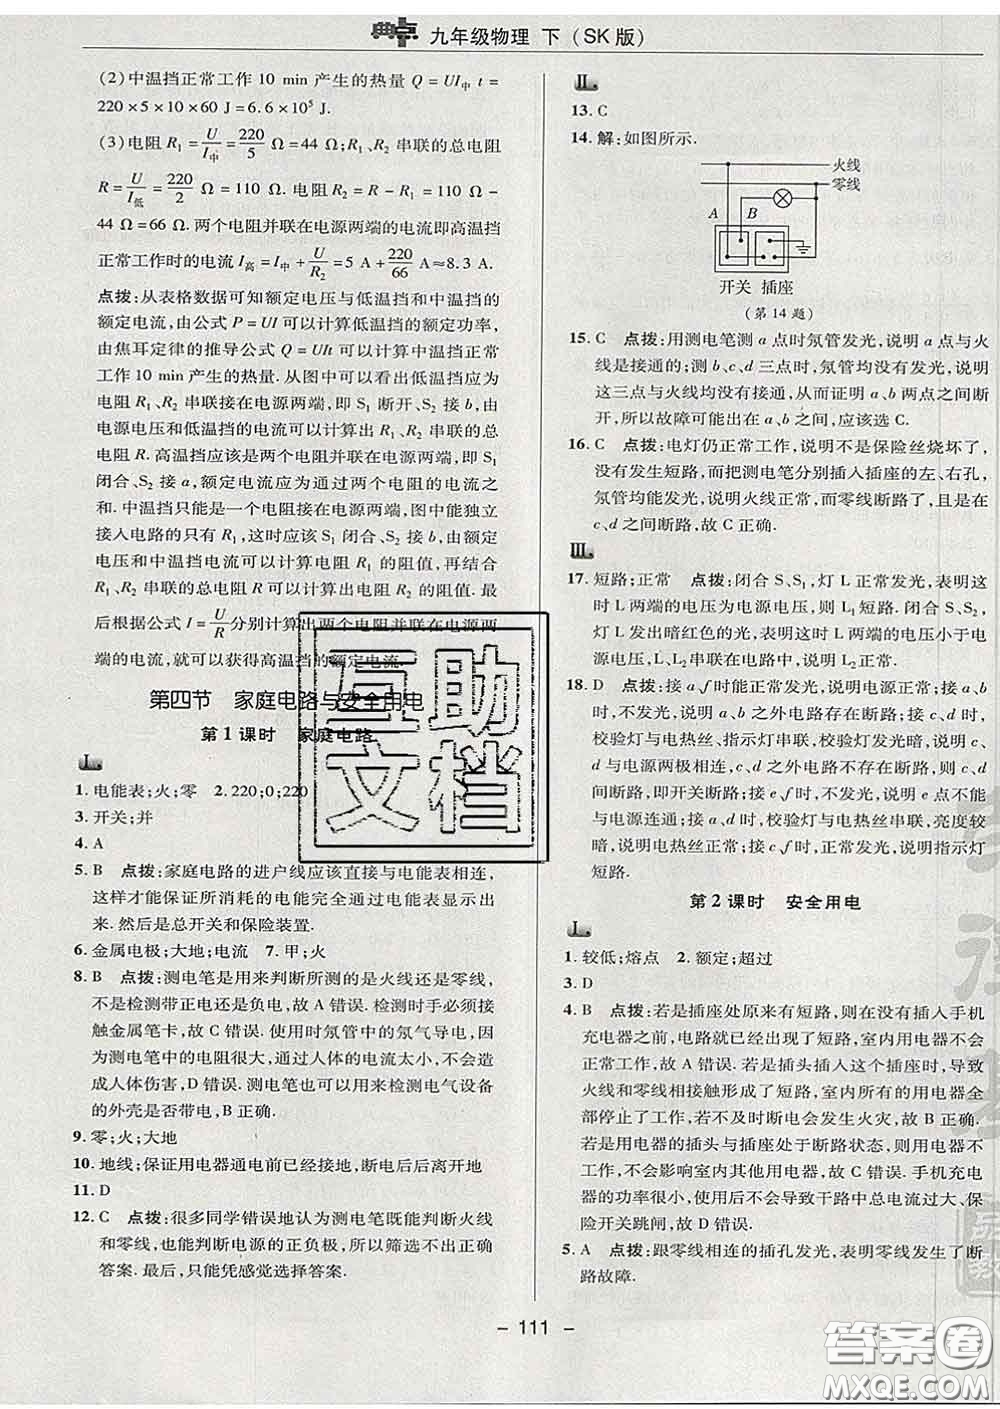 典点 九年级物理 下(SK版)
(2)中温挡正常工作 10 min 产生的热量 Q = UI中 t =
220×5×10×60 J=6.6×10⁵ J.
(3)电阻 R₁ = U/I中 = 220/5 Ω=44 Ω;R₁、R₂ 串联的总电阻
R = U/I低 = 220/2 Ω = 110 Ω. 电阻 R₂ = R − R₁ = 110 Ω −
44 Ω=66 Ω. 两个电阻并联在电源两端的电流即高温挡
正常工作时的电流 I高=I中+U/R₂=5 A+220/66 A≈8.3 A.
点拨:从表格数据可知额定电压与低温挡和中温挡的
额定电流,由公式 P=UI 可以计算低温挡的额定功率,
由焦耳定律的推导公式 Q=UIt 可以计算中温挡正常
工作 10 min 产生的热量. 从图可以看出低温挡应为
电阻 R₁、R₂ 串联接在电源两端,即 S₁ 断开、S₂ 接 b,由
额定电压和低温挡的电流可以计算出 R₁、R₂ 串联的总
电阻 R. 高温挡应该是两个电阻并联在电源两端,即 S₁
闭合、S₂ 接 a,额定电流应为通过两个电阻的电流之
和. 中温挡只能是一个电阻接在电源两端,图中能独立
接入电路的只有 R₁,这时应该 S₁ 闭合、S₂ 接 b,由额定
电压和中温挡电流可以计算电阻 R₁ 的阻值,再结合
R₁、R₂ 串联的总电阻 R 可以计算出电阻 R₂ 的阻值. 最
后根据公式 I = U/R 分别计算出两个电阻并联在电源两
端的电流,就可以获得高温挡的额定电流.
第四节 家庭电路与安全用电
第 1 课时 家庭电路
Ⅰ.
1. 电能表;火;零 2. 220;0;220
3. 开关;并
4. A
5. B 点拨:家庭电路的进户线应该直接与电能表相连,
这样才能保证所消耗的电能完全通过电能表显示出
来. 然后是总开关和保险装置.
6. 金属电极;大地;电流 7. 甲;火
8. B 点拨:测电笔是用来判断所测的是火线还是零线,
不是检测带正电还是负电,故 A 错误. 检测时手必须接
触金属笔卡,故 C 错误. 使用时氖管中的氖气导电,因
为测电笔中的电阻很大,通过人体的电流太小,不会造
成人体伤害,D 错误. 测电笔也可以用来检测电气设备
的外壳是否带电,B 正确.
9. 零;火;大地
10. 地线;保证用电器通电前已经接地,断电后后离开地
11. D
12. C 点拨:很多同学错误地认为测电笔既能判断火线
和零线,也能判断电源的正负极,所以筛选不出正确
答案. 最后,只能凭感觉选择答案.
Ⅱ.
13. C
14. 解:如图所示.
火线
零线
A B
开关 插座
(第 14 题)
15. C 点拨:用测电笔测 a 点时氖管发光,说明 a 点与火
线是接通的;测 b、c、d 三点时,氖管均没有发光,说明
这三点与火线均没有接通,从而证明 a、b 两点之间断
开,所以故障可能出在 a、b 之间,应该选 C.
16. C 点拨:电灯仍正常工作,说明不是保险丝烧坏了,
没有发生短路,而把测电笔分别插入插座的左、右孔,
氖管均能发光,说明火线正常,而零线断路了,且是在
c、d 之间断路,故 C 正确.
Ⅲ.
17. 短路;正常 点拨:闭合 S、S₁,灯 L 正常发光,表明这
时 L 两端的电压为电源电压,则 L₁ 短路. 闭合 S、S₂,
灯 L 发出暗红色的光,表明这时 L 两端的电压小于电
源电压,L、L₂ 串联在电路中,说明 L₂ 正常.
18. D 点拨:接 a、f 时能正常发光,说明电源正常;接 a、b
时,不发光,说明 a、b 之外电路存在断路;接 b、c 时,
校验灯与电热丝、指示灯串联,校验灯发光暗,说明
c、d 与电源两极相连,c、d 之外电路不存在断路,a、b
断路,即开关断路;接 e、f 时,不发光,说明 e 点不能
与电源连通;接 a、d 时,校验灯与电热丝串联,亮度较
暗,说明电热丝正常;接 c、f 时,正常发光,说明指示灯
短路.
第 2 课时 安全用电
Ⅰ.
1. 较低;熔点 2. 额定;超过
3. D
4. B 点拨:若是插座处原来有短路,则在没有插入手机
充电器之前,电路就已经出现了短路,室内用电器不会
正常工作,故 A 错误. 若是插头插入这个插座时,导致
火线和零线相接触形成了短路,室内所有的用电器全
部停止了工作,若不及时断电会发生火灾,故 B 正确.
若是用电器的插头与插座处于断路状态,则用电器不
工作,不影响室内其他用电器,故 C 错误. 手机充电
器的功率很小,插入后不会导致干路中总电流过大、保
险开关跳闸,故 D 错误.
5. A 点拨:跟零线相连的插孔发光,表明零线发生了断
路故障.
- 111 -
互助
文档
答案圈
MXQE.COM